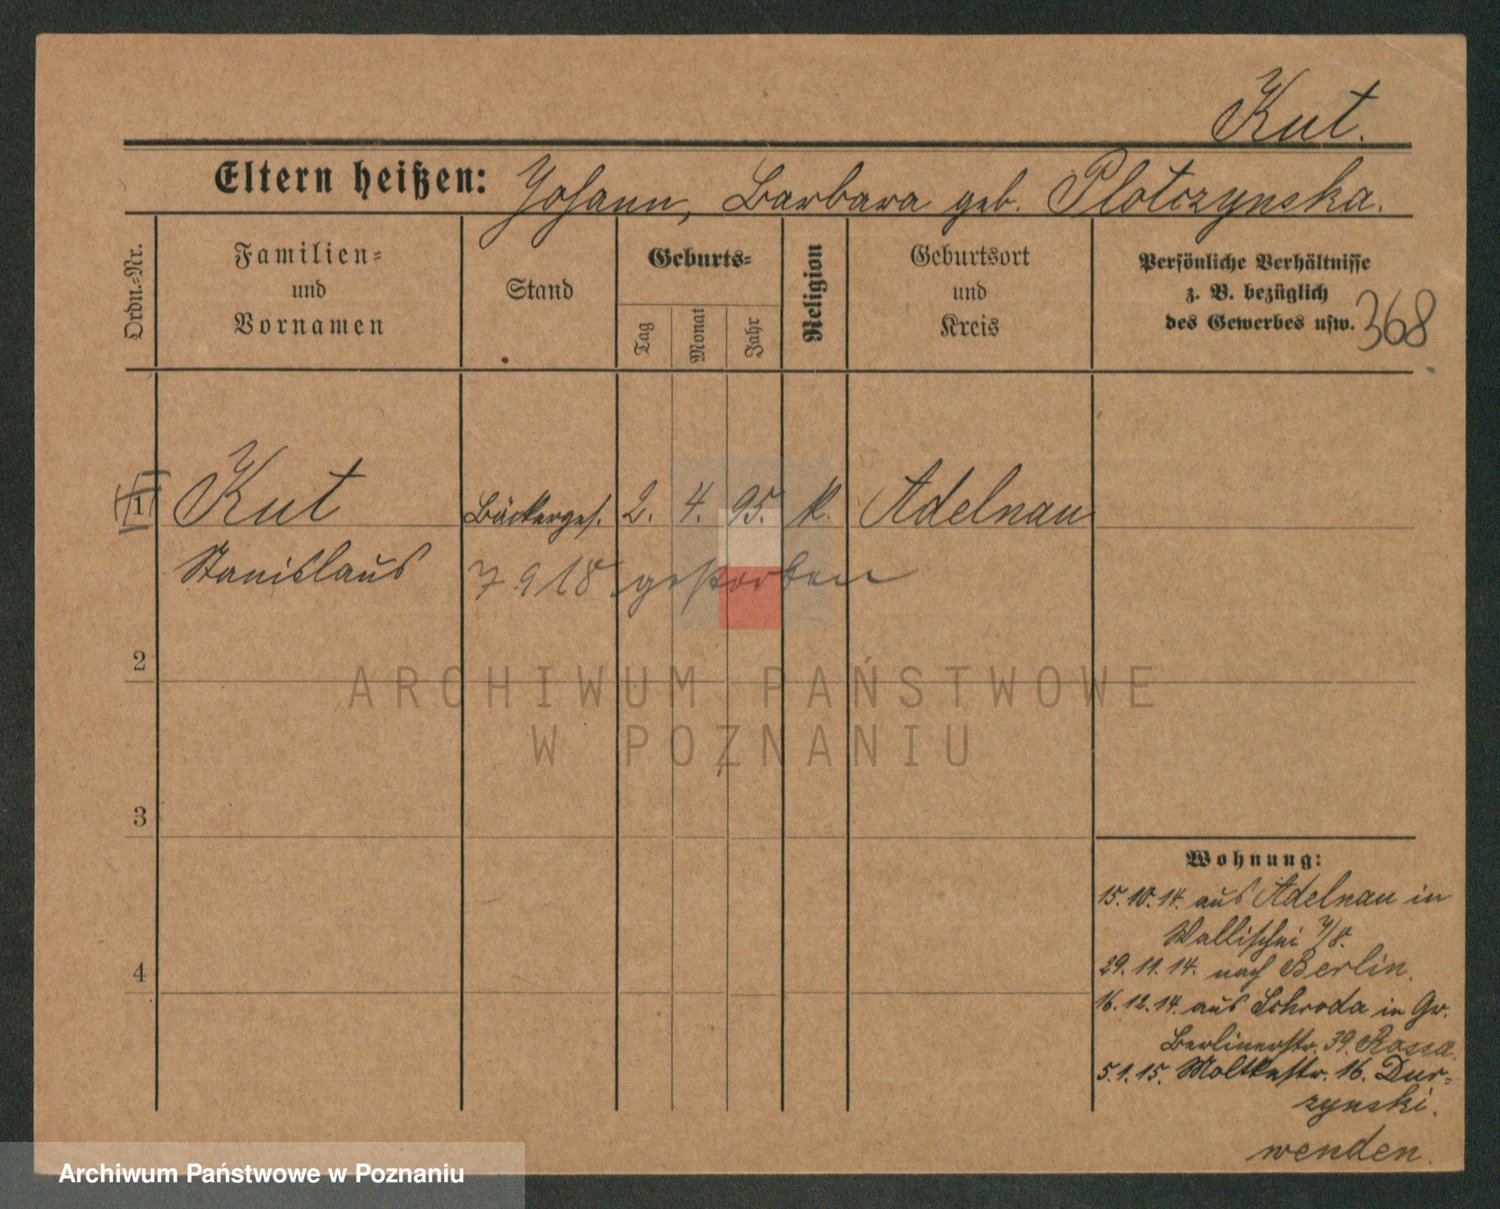 Kut.
Eltern heißen: Johann, Barbara geb. Plotczynska.
Ordn.-Nr.
Familien-
und
Vornamen
Stand
Geburts-
Tag
Monat
Jahr
Religion
Geburtsort
und
Kreis
Persönliche Verhältnisse
z. B. bezüglich
des Gewerbes usw.
368
1 Kut Bäckerges. 2. 4. 95. k. Adelnau
Stanislaus 7 9 18 gestorben
2
ARCHIWUM PAŃSTWOWE
W POZNANIU
3
Wohnung:
15.10.14. aus Adelnau in
Wallischei 7/8.
4
29.11.14. nach Berlin.
16.12.14. aus Schroda in Gr.
Berlinerstr. 39. Rossa.
5.1.15. Moltkestr. 16. Dur-
zynski.
wenden.
Archiwum Państwowe w Poznaniu